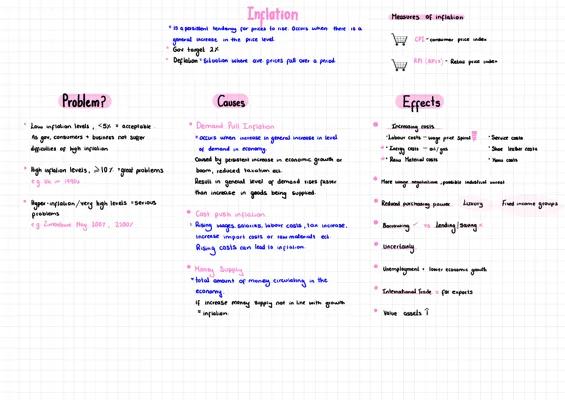 Inflation
* is a persistent tendency for prices to rise. Occurs when there is a
general increase in the price level.
* Gov target 2%
* Deflation = Situation where ave prices fall over a period.
Measures of inflation
CPI - consumer price index
RPI (RPIX) - Retail price index
Problem?
* Low inflation levels, <5% = acceptable
As gov, consumers + business not suffer
difficulties of high inflation
* High inflation levels, ≥10% = great problems
e.g. UK in 1990s
* Hyper-inflation/very high levels = serious
problems
e.g Zimbabwe May 2007, 2200%
Causes
* Demand Pull Inflation
* occurs when increase in general increase in level
of demand in economy.
Caused by persistent increase in economic growth or
boom, reduced taxation ect.
Result in general level of demand rises faster
than increase in goods being supplied.
* Cost push inflation
* Rising wages, salaries, labour costs, tax increase,
increase import costs or raw materials ect.
Rising costs can lead to inflation.
* Money Supply
* total amount of money circulating in the
economy.
If increase money supply not in line with growth
= inflation.
Effects
* Increasing costs
* Labour costs - wage price spiral
* Energy costs - oil/gas
* Raw Material costs
* Service costs
* Shoe leather costs
* Menu costs
* More wage negotiation, possible industrial unrest
* Reduced purchasing power Luxury Fixed income groups
* Borrowing ✓ vs lending/saving x
* Uncertainty
* Unemployment + lower economic growth
* International Trade = for exports
* Value assets ↑